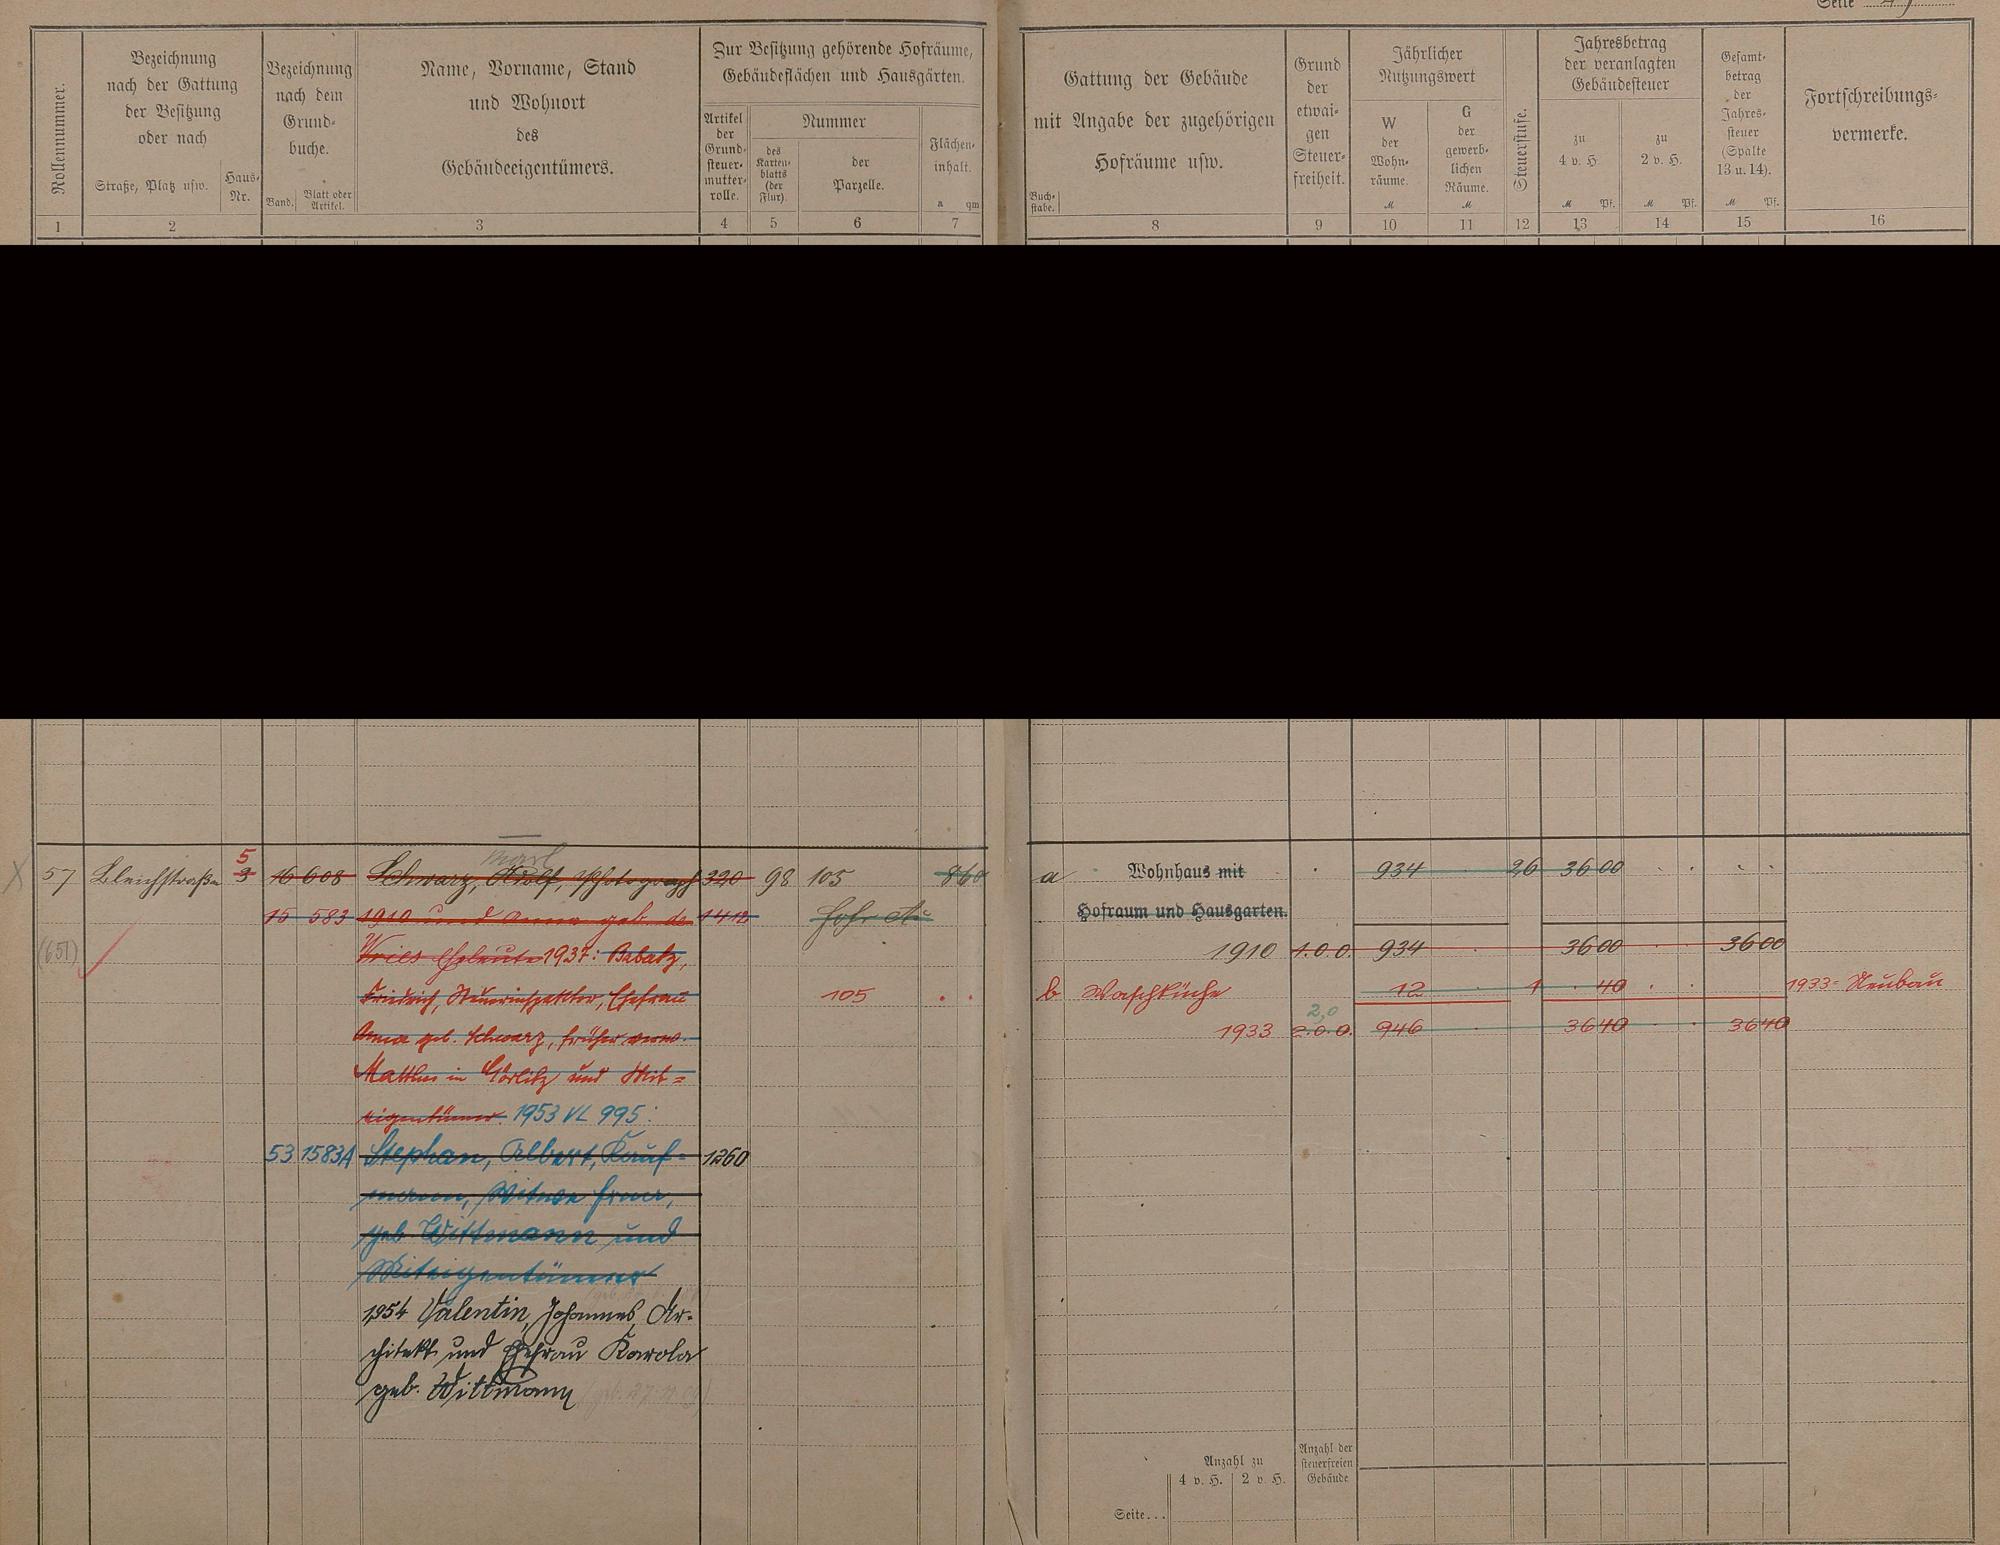 Seite
Rollennummer.
Bezeichnung
nach der Gattung
der Besitzung
oder nach
Straße, Platz usw.
Haus-
Nr.
Bezeichnung
nach dem
Grund-
buche.
Band.
Blatt oder
Artikel.
Name, Vorname, Stand
und Wohnort
des
Gebäudeeigentümers.
Zur Besitzung gehörende Hofräume,
Gebäudeflächen und Hausgärten.
Artikel
der
Grund-
steuer-
mutter-
rolle.
Nummer
des
Karten-
blatts
(der
Flur).
der
Parzelle.
Flächen-
inhalt.
a qm
1 2 3 4 5 6 7
Gattung der Gebäude
mit Angabe der zugehörigen
Hofräume usw.
Buch-
stabe.
Grund
der
etwai-
gen
Steuer-
freiheit.
Jährlicher
Nutzungswert
W
der
Wohn-
räume.
M
G
der
gewerb-
lichen
Räume.
M
Steuerstufe.
Jahresbetrag
der veranlagten
Gebäudesteuer
zu
4 v. H.
M Pf.
zu
2 v. H.
M Pf.
Gesamt-
betrag
der
Jahres-
steuer
(Spalte
13 u. 14).
M Pf.
Fortschreibungs-
vermerke.
8 9 10 11 12 13 14 15 16
5
57 Bleichstraße 3 16 608 Schwarz, Adolf, Photograph 320 98 105 860
15 583 1910 und Anna geb. de 1412
(651) Vries Eheleute 1937: Babatz,
Friedrich, Steuerinspektor, Ehefrau 105
Anna geb. Schwarz, früher verw.
Matthes in Görlitz und Mit-
eigentümer. 1953 VL 995:
53 1583A Stephan, Albert, Kauf- 1260
mann, Witwe
geb Wittmann und
Miteigentümer
1954 Valentin, Johannes, Ar-
chitekt und Ehefrau Karola
geb. Wittmann
a Wohnhaus mit 934 26 36 00
Hofraum und Hausgarten.
1910 1.0.0. 934 36 00 36 00
b Waschküche 12 1 40 1933 Neubau
2,0
1933 2.0.0. 946 36 40 36 40
Anzahl zu
4 v. H. 2 v. H.
Anzahl der
steuerfreien
Gebäude
Seite...